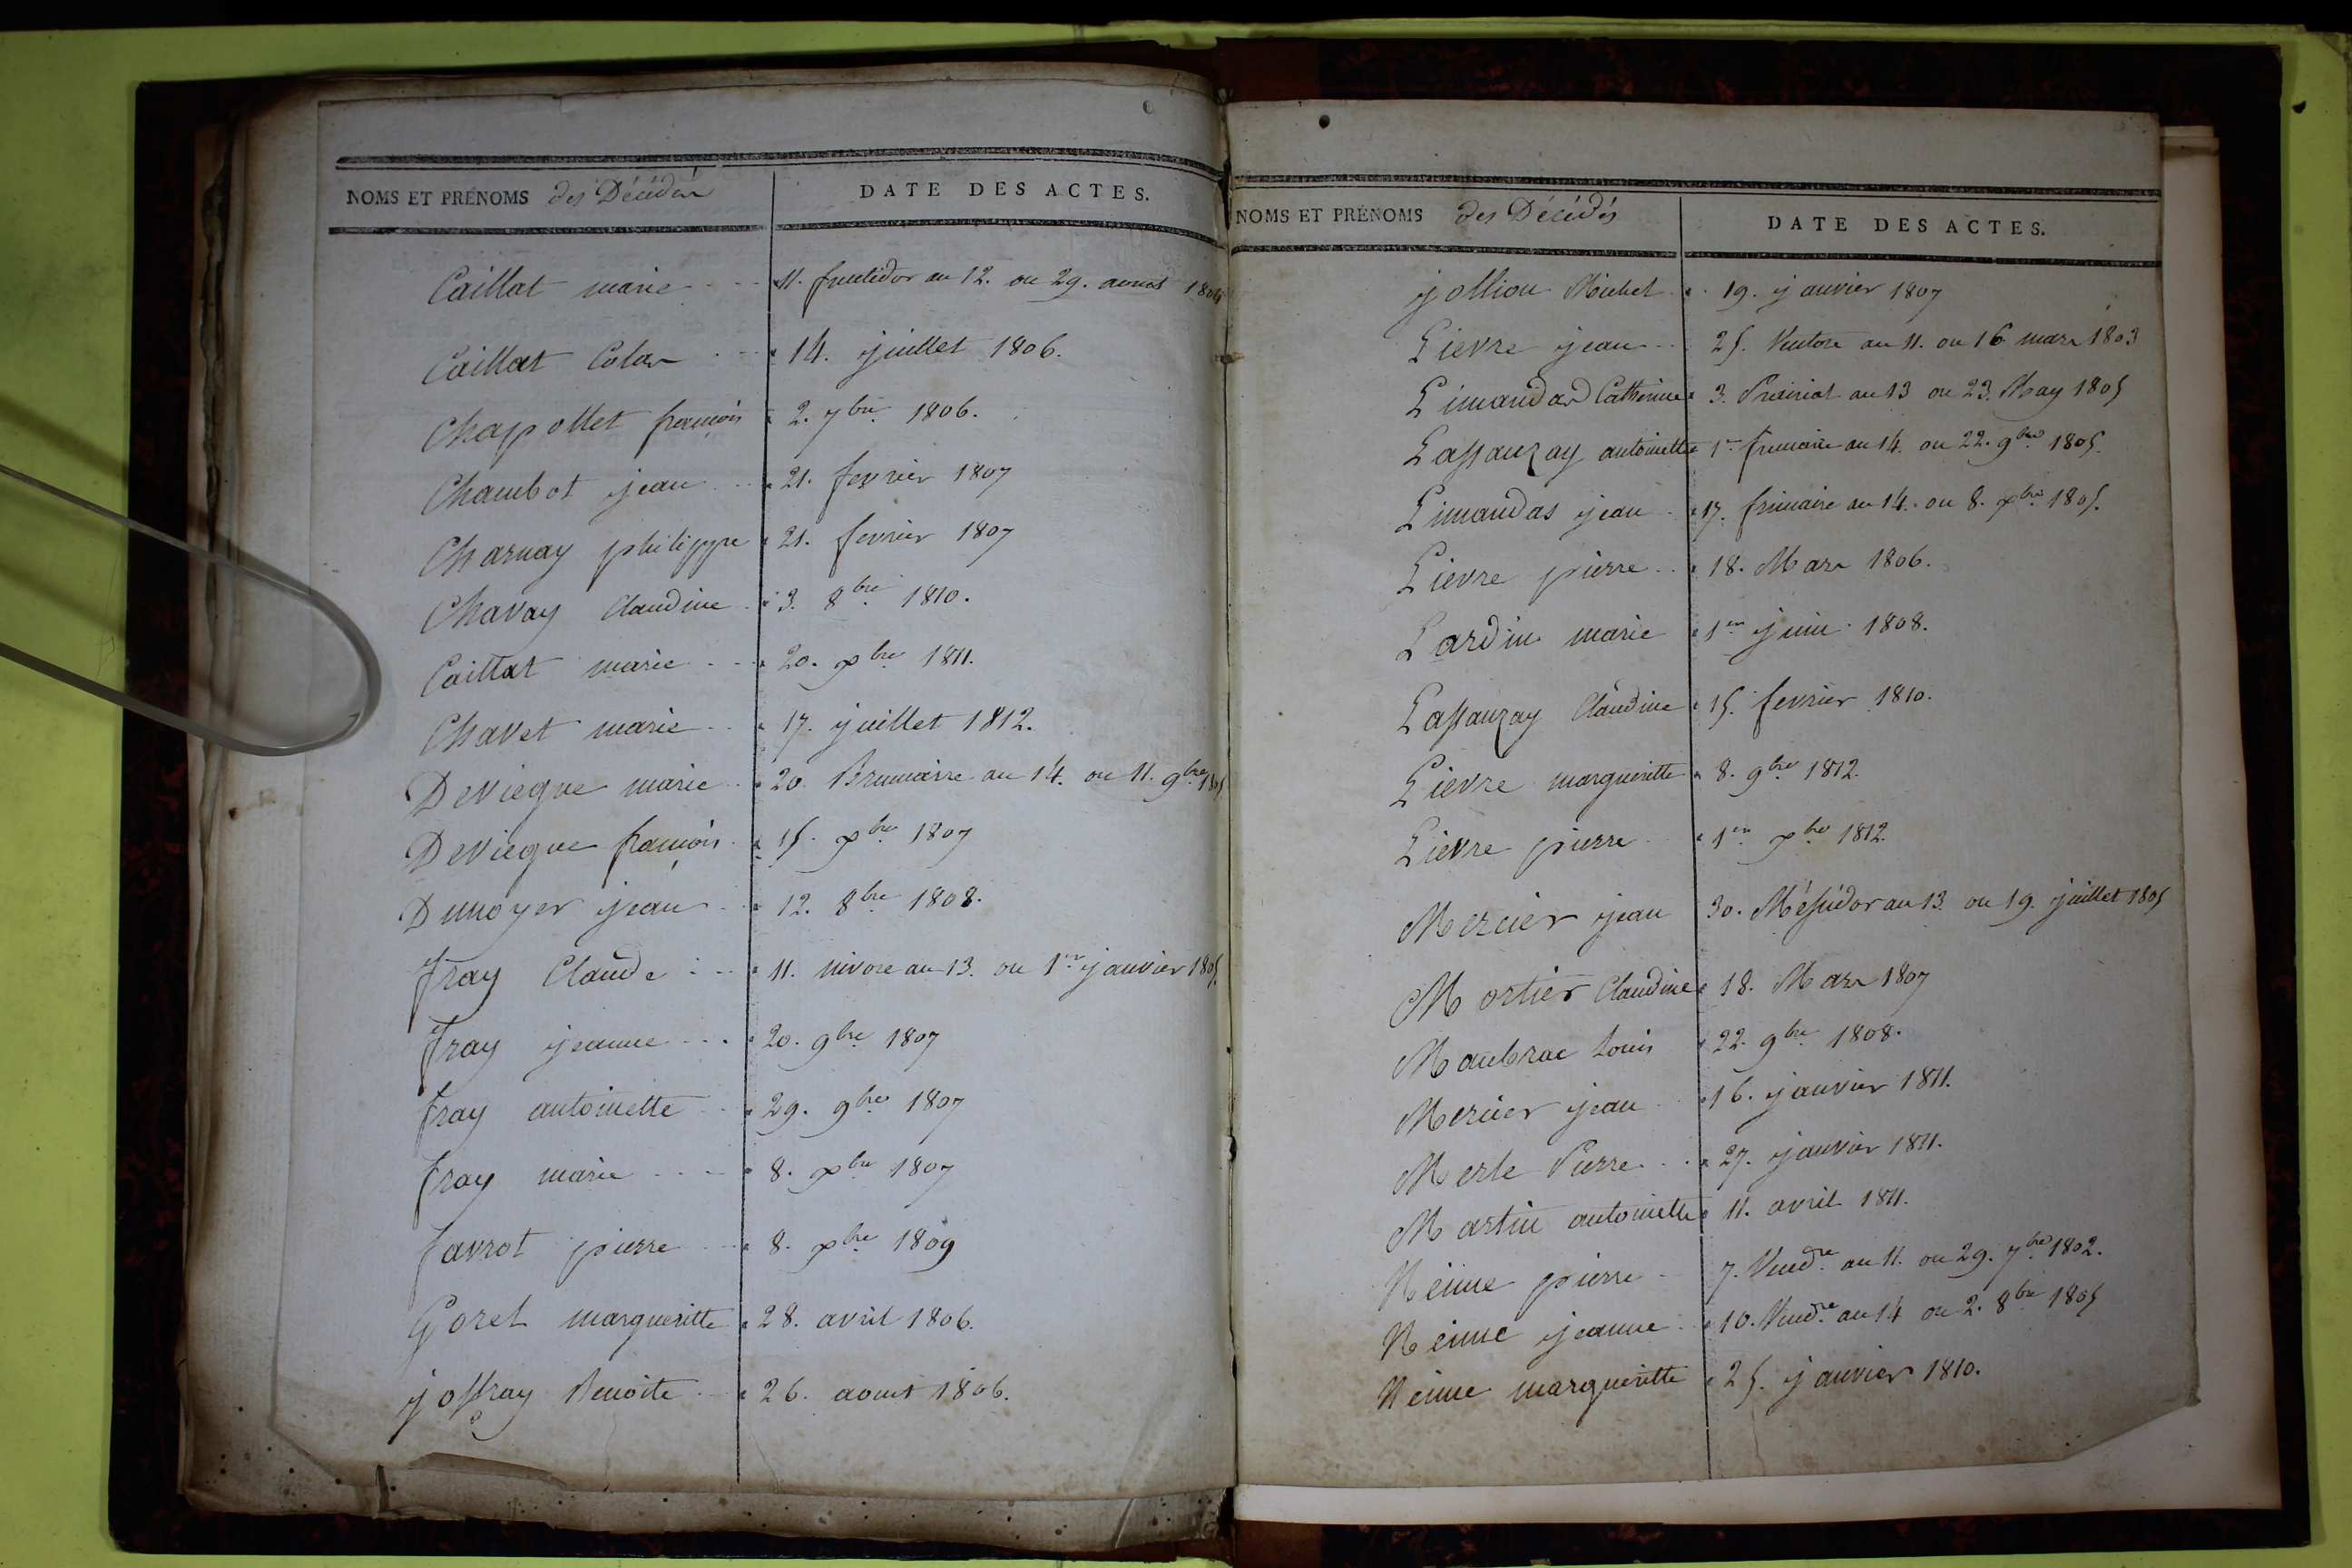 NOMS ET PRÉNOMS des Décédés DATE DES ACTES.
Caillat marie 11. fructidor an 12. ou 29. aoust 1804
Caillat Colas 14. juillet 1806.
Chapollet françois 2. 7bre 1806.
Chambot jean 21. fevrier 1807
Charnay philippe 21. fevrier 1807
Chavay Claudine 3. 8bre 1810.
Caillat marie 20. xbre 1811.
Chavet marie 17. juillet 1812.
Devicque marie 20. Brumaire an 14. ou 11. 9bre 1805
Devicque françois 15. xbre 1807
Dunoyer jean 12. 8bre 1808.
fray Claude 11. nivose an 13. ou 1er janvier 1805.
fray jeanne 20. 9bre 1807
fray antoinette 29. 9bre 1807
fray marie 8. xbre 1807
favrot pierre 8. xbre 1809
Goret margueritte 28. avril 1806.
joffray Benoite 26. aoust 1806.
NOMS ET PRÉNOMS des Décédés DATE DES ACTES.
jollion Michel 19. janvier 1807
Lievre jean 25. Ventose an 11. ou 16 mars 1803
Limandas Catherine 3. Prairial an 13 ou 23. May 1805
Lassauzay antoinette 1er frimaire an 14. ou 22. 9bre 1805.
Limandas jean 17. frimaire an 14. ou 8. xbre 1805.
Lievre pierre 18. Mars 1806.
Lardin marie 1er juin 1808.
Lassauzay Claudine 15. fevrier 1810.
Lievre margueritte 8. 9bre 1812.
Lievre pierre 1er xbre 1812.
Mercier jean 30. Méssidor an 13. ou 19. juillet 1805
Mortier Claudine 18. Mars 1807
Maubrac Louis 22. 9bre 1808.
Mercier jean 16. janvier 1811.
Merle Pierre 27. janvier 1811.
Martin antoinette 11. avril 1811.
Néime pierre 7. Vendre an 11. ou 29. 7bre 1802.
Néime jeanne 10. Vendre an 14 ou 2. 8bre 1805
Néime margueritte 25. janvier 1810.